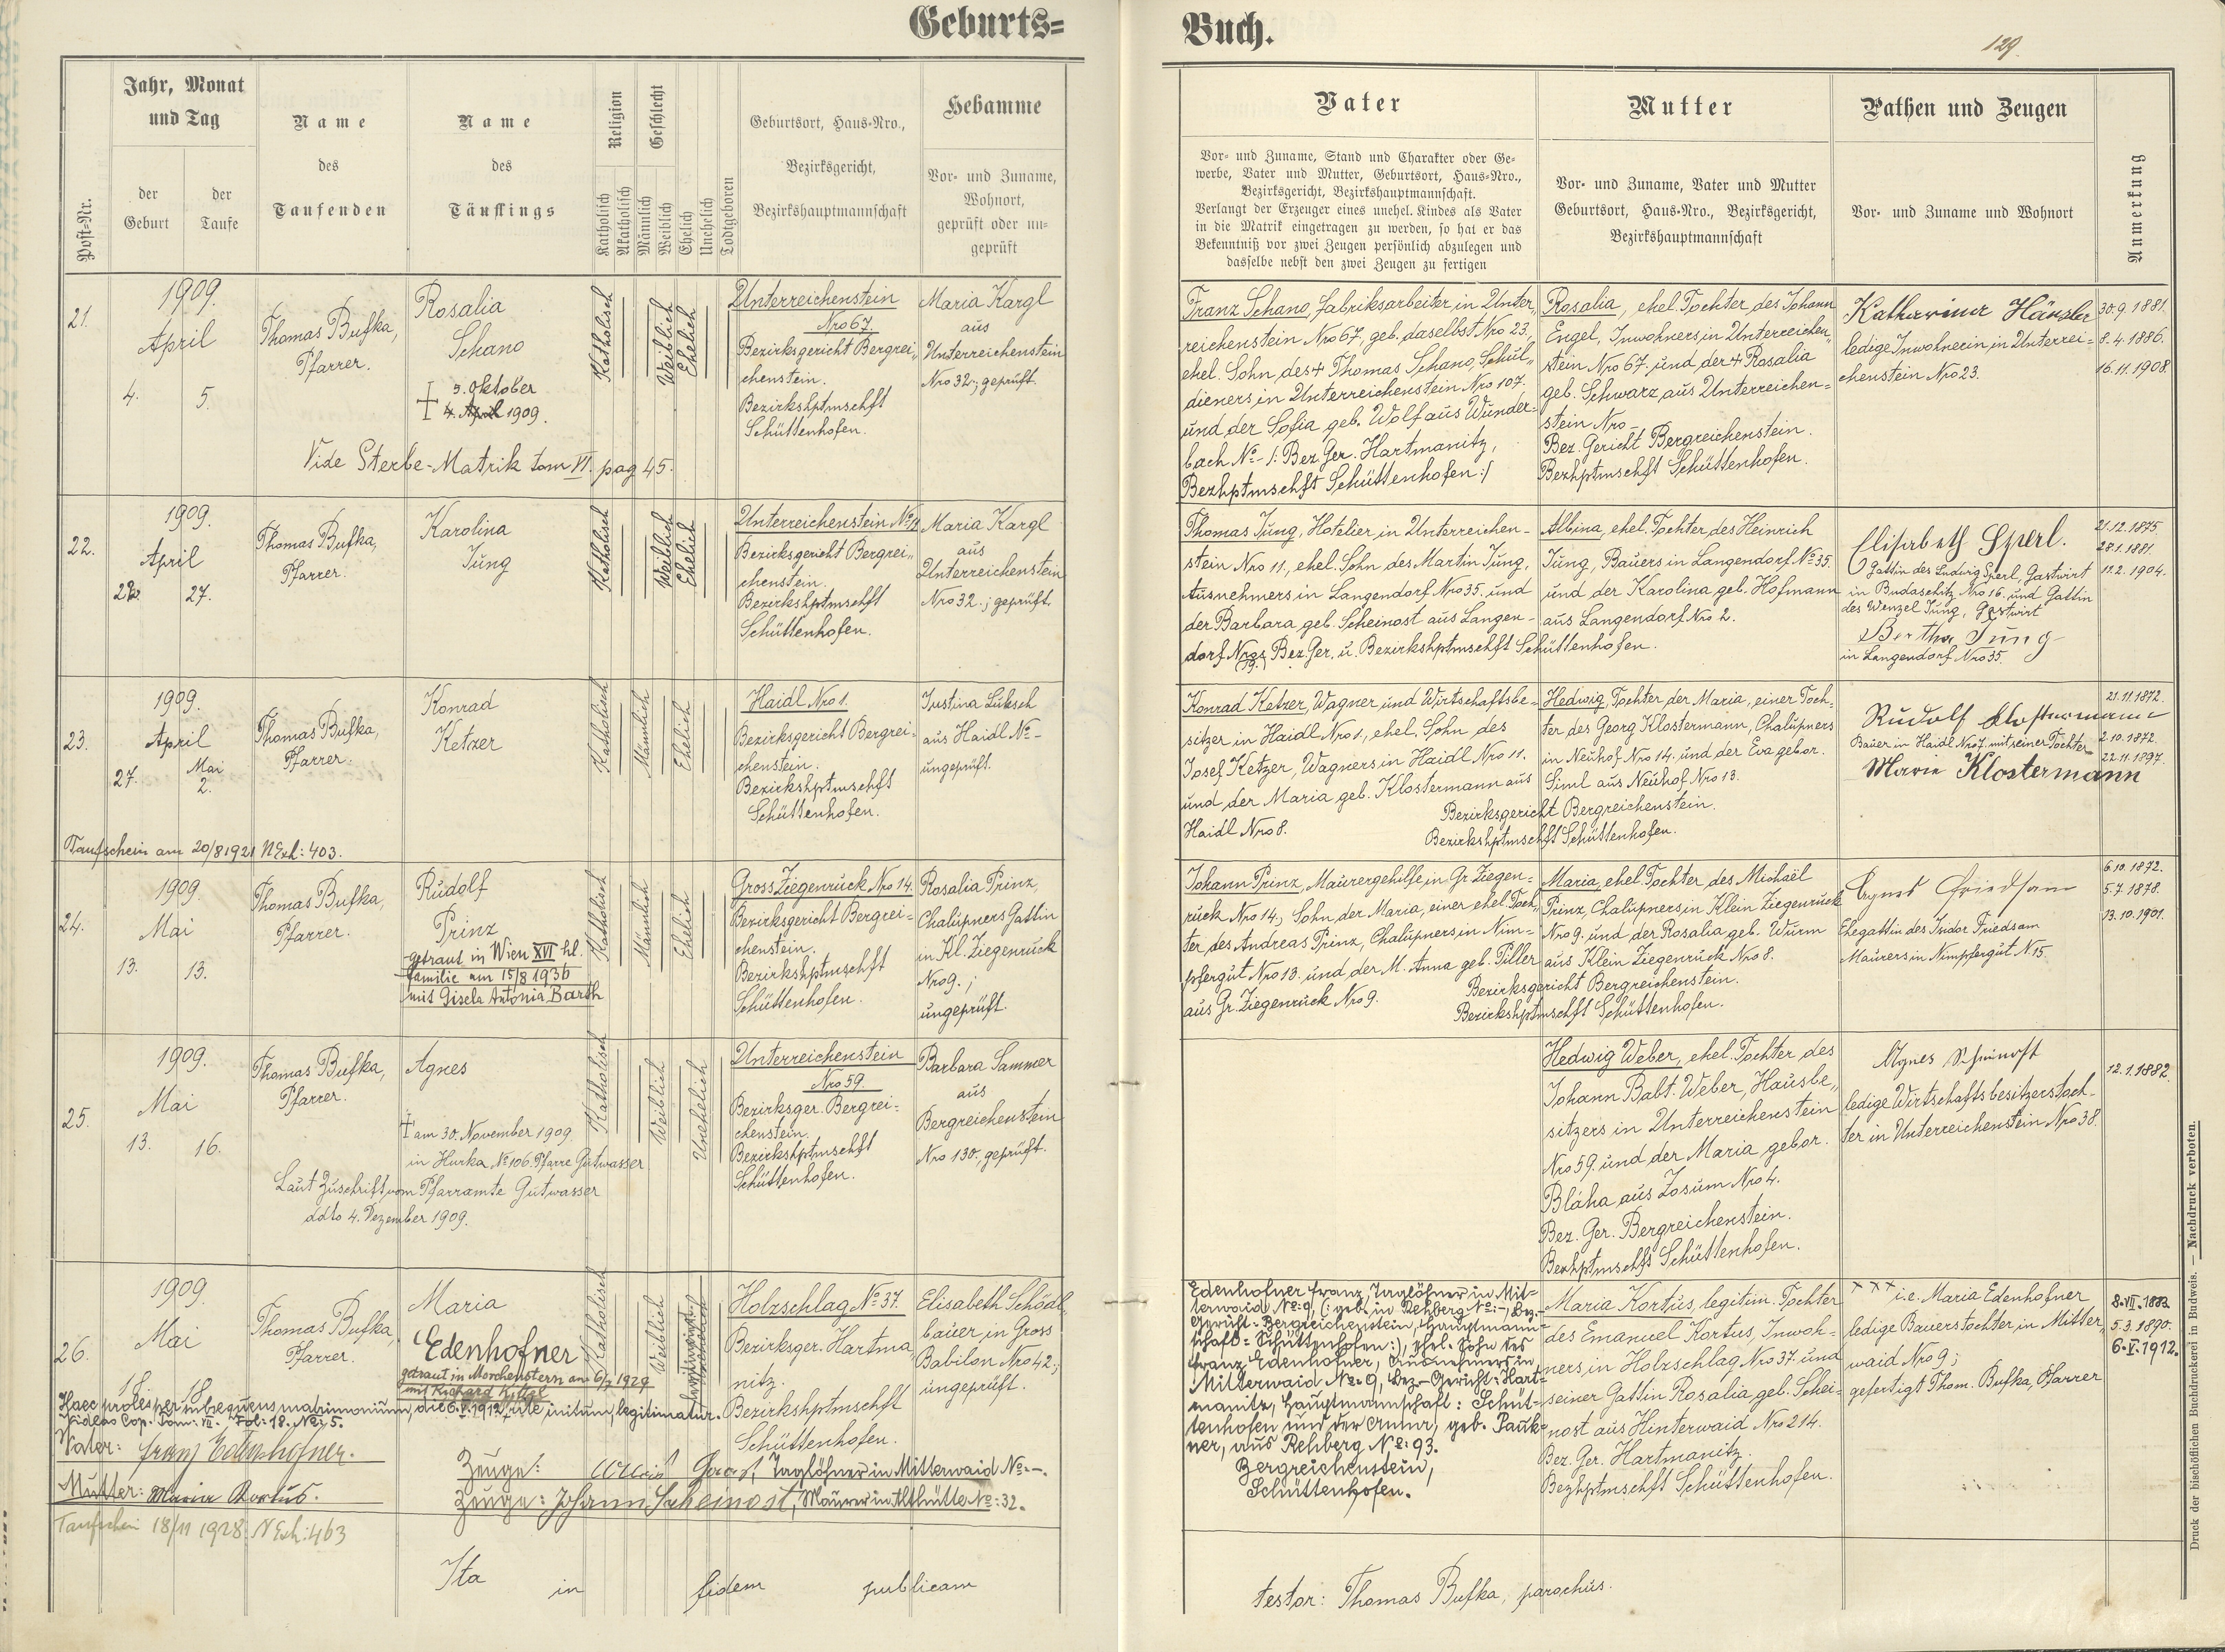 Geburts=
Buch.
129.
Post-Nr.
Jahr, Monat
und Tag
der
Geburt
der
Taufe
Name
des
Taufenden
Name
des
Täuflings
Religion
Katholisch
Akatholisch
Geschlecht
Männlich
Weiblich
Ehelich
Unehelich
Todtgeboren
Geburtsort, Haus-Nro.,
Bezirksgericht,
Bezirkshauptmannschaft
Hebamme
Vor- und Zuname,
Wohnort,
geprüft oder un=
geprüft
Vater
Vor- und Zuname, Stand und Charakter oder Ge=
werbe, Vater und Mutter, Geburtsort, Haus-Nro.,
Bezirksgericht, Bezirkshauptmannschaft.
Verlangt der Erzeuger eines unehel. Kindes als Vater
in die Matrik eingetragen zu werden, so hat er das
Bekenntniß vor zwei Zeugen persönlich abzulegen und
dasselbe nebst den zwei Zeugen zu fertigen
Mutter
Vor- und Zuname, Vater und Mutter
Geburtsort, Haus-Nro., Bezirksgericht,
Bezirkshauptmannschaft
Pathen und Zeugen
Vor- und Zuname und Wohnort
Anmerkung
21.
1909.
April
4. 5.
Thomas Bufka,
Pfarrer.
Rosalia
Schano
5. Oktober
† 4. April 1909.
Vide Sterbe-Matrik tom VI. pag 45.
Katholisch
Weiblich
Ehelich
Unterreichenstein
Nro 67.
Bezirksgericht Bergrei=
chenstein.
Bezirkshptmschft
Schüttenhofen.
Maria Kargl
aus
Unterreichenstein
Nro 32; geprüft.
Franz Schano, Fabriksarbeiter in Unter=
reichenstein Nro 67, geb. daselbst Nro 23,
ehel. Sohn des † Thomas Schano, Schul=
dieners in Unterreichenstein Nro 107.
und der Sofia geb. Wolf aus Wunder=
bach No - /: Bez. Ger. Hartmanitz,
Bezhptmschft Schüttenhofen :/
Rosalia, ehel. Tochter des Johann
Engel, Inwohners in Unterreichen=
stein Nro 67. und der † Rosalia
geb. Schwarz aus Unterreichen=
stein Nro -
Bez. Gericht Bergreichenstein.
Bezhptmschft Schüttenhofen.
Katharina Hänsler
ledige Inwohnerin in Unterrei=
chenstein Nro 23.
30.9.1881.
8.4.1886.
16.11.1908.
22.
1909.
April
27.
Thomas Bufka,
Pfarrer.
Karolina
Jung
Katholisch
Weiblich
Ehelich
Unterreichenstein No 11
Bezirksgericht Bergrei=
chenstein.
Bezirkshptmschft
Schüttenhofen.
Maria Kargl
aus
Unterreichenstein
Nro 32.; geprüft.
Thomas Jung, Hotelier in Unterreichen=
stein Nro 11, ehel. Sohn des Martin Jung,
Ausnehmers in Langendorf Nro 35. und
der Barbara geb. Scheinost aus Langen=
dorf Nro Bez. Ger. u. Bezirkshptmschft Schüttenhofen.
Albina, ehel. Tochter des Heinrich
Jung, Bauers in Langendorf No 35.
und der Karolina geb. Hofmann
aus Langendorf Nro 2.
Elisabeth Sperl.
Gattin des Ludwig Sperl, Gastwirt
in Budaschitz Nro 16. und Gattin
des Wenzel Jung, Gastwirt
Bertha Jung
in Langendorf Nro 35.
21.12.1875.
28.1.1881.
11.2.1904.
23.
1909.
April
27. Mai
2.
Thomas Bufka,
Pfarrer.
Konrad
Ketzer
Taufschein am 20/8 1921 N Exh: 403.
Katholisch
Männlich
Ehelich
Haidl Nro 1.
Bezirksgericht Bergrei=
chenstein.
Bezirkshptmschft
Schüttenhofen.
Justina Luksch
aus Haidl No -
ungeprüft.
Konrad Ketzer, Wagner und Wirtschaftsbe=
sitzer in Haidl Nro 1, ehel. Sohn des
Josef Ketzer, Wagners in Haidl Nro 11.
und der Maria geb. Klostermann aus
Haidl Nro 8.
Hedwig, Tochter der Maria, einer Toch=
ter des Georg Klostermann, Chalupners
in Neuhof Nro 14. und der Eva gebor.
Siml aus Neuhof Nro 13.
Bezirksgericht Bergreichenstein.
Bezirkshptmschft Schüttenhofen.
Rudolf Klostermann
Bauer in Haidl Nro 7. mit seiner Tochter
Marie Klostermann
21.11.1872.
2.10.1872.
22.11.1897.
24.
1909.
Mai
13. 13.
Thomas Bufka,
Pfarrer.
Rudolf
Prinz
getraut in Wien XVI hl.
Familie am 15/8 1936
mit Gisela Antonia Barth
Katholisch
Männlich
Ehelich
Gross Ziegenruck Nro 14.
Bezirksgericht Bergrei=
chenstein.
Bezirkshptmschft
Schüttenhofen.
Rosalia Prinz,
Chalupners Gattin
in Kl. Ziegenruck
Nro 9.;
ungeprüft.
Johann Prinz, Maurergehilfe in Gr. Ziegen=
ruck Nro 14, Sohn der Maria, einer ehel. Toch=
ter des Andreas Prinz, Chalupners in Nim=
pfergut Nro 13. und der M. Anna geb. Piller
aus Gr. Ziegenruck Nro 9.
Maria, ehel. Tochter des Michaël
Prinz, Chalupners in Klein Ziegenruck
Nro 9. und der Rosalia geb. Wurm
aus Klein Ziegenruck Nro 8.
Bezirksgericht Bergreichenstein.
Bezirkshptmschft Schüttenhofen.
Agnes Friedsam
Ehegattin des Isidor Friedsam
Maurers in Nimpfergut N. 15.
6.10.1872.
5.7.1878.
13.10.1901.
25.
1909.
Mai
13. 16.
Thomas Bufka,
Pfarrer.
Agnes
† am 30. November 1909
in Hurka No 106. Pfarre Gutwasser
Laut Zuschrift vom Pfarramte Gutwasser
ddto 4. Dezember 1909.
Katholisch
Weiblich
Unehelich
Unterreichenstein
Nro 59
Bezirksger. Bergrei=
chenstein.
Bezirkshptmschft
Schüttenhofen.
Barbara Sammer
aus
Bergreichenstein
Nro 130., geprüft.
Hedwig Weber, ehel. Tochter des
Johann Babt. Weber, Hausbe=
sitzers in Unterreichenstein
Nro 59. und der Maria gebor.
Bláha aus Zosum Nro 4.
Bez. Ger. Bergreichenstein.
Bezhptmschft Schüttenhofen.
Agnes Scheinost
ledige Wirtschaftsbesitzerstoch=
ter in Unterreichenstein Nro 38.
12.1.1882.
26.
1909.
Mai
18. 18.
Thomas Bufka,
Pfarrer.
Maria
Edenhofner
getraut in Morchenstern am 6/7 1929
mit Richard Kittel
Katholisch
Weiblich
Unehelich
Holzschlag No 37.
Bezirksger. Hartma=
nitz.
Bezirkshptmschft
Schüttenhofen.
Elisabeth Schödl=
bauer in Gross
Babilon Nro 42;
ungeprüft.
Edenhofner Franz, Taglöhner in Mit=
terwaid No: 9, (: geb. in Rehberg No: -, Bez.=
Gericht= Bergreichenstein, Hauptmann=
schaft= Schüttenhofen:), ehel. Sohn des
Franz Edenhofner, Ausnehmers in
Mitterwaid No: 9, Bez.-Gericht: Hart=
manitz, Hauptmannschaft: Schüt=
tenhofen und der Anna, geb. Pauk=
ner, aus Rehberg No: 93.
Bergreichenstein,
Schüttenhofen.
Maria Kortus, legitim. Tochter
des Emanuel Kortus, Inwoh=
ners in Holzschlag Nro 37. und
seiner Gattin Rosalia geb. Schei=
nost aus Hinterwaid Nro 214.
Bez. Ger. Hartmanitz.
Bezhptmschft Schüttenhofen.
××× i.e. Maria Edenhofner
ledige Bauerstochter in Mitter=
waid Nro 9;
gefertigt Thom. Bufka, Pfarrer
8.VII.1883.
5.3.1890.
6.V.1912.
Haec proles per subsequens matrimonium, die 6.V.1912, rite initum, legitimatur.
Videas Cop. Tom: VII. Fol: 18. No: 5.
Vater: Franz Edenhofner.
Mutter: Maria Kortus.
Zeuge: Taglöhner in Mitterwaid No: -.
Zeuge: Johann Scheinost, Maurer in Althütte No: 32.
Taufschein 18/11 1928. N Exh: 463
Ita in fidem publicam
testor: Thomas Bufka, parochus.
Druck der bischöflichen Buchdruckerei in Budweis. — Nachdruck verboten.